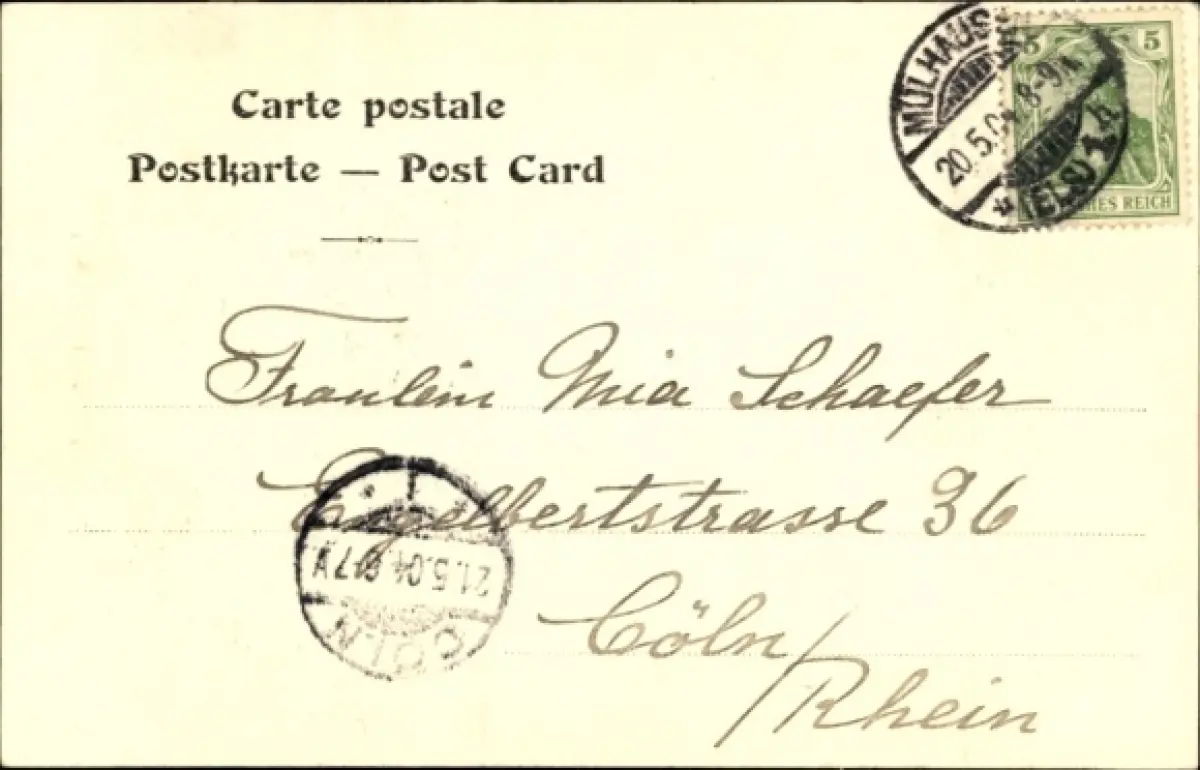 Carte postale
Postkarte — Post Card
MÜLHAUSEN
20.5.04 8-9N
* (ELS) 1 h
5 5
HES REICH
Fraulein Mia Schaefer
Engelbertstrasse 36
Cöln/
Rhein
21.5.04 6-7V
CÖLN